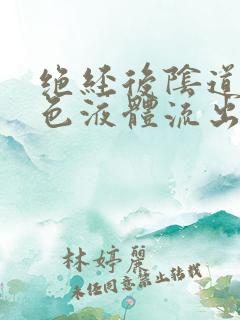 絕經後陰道
色液體流出
林婷麗
未經同意禁止轉載